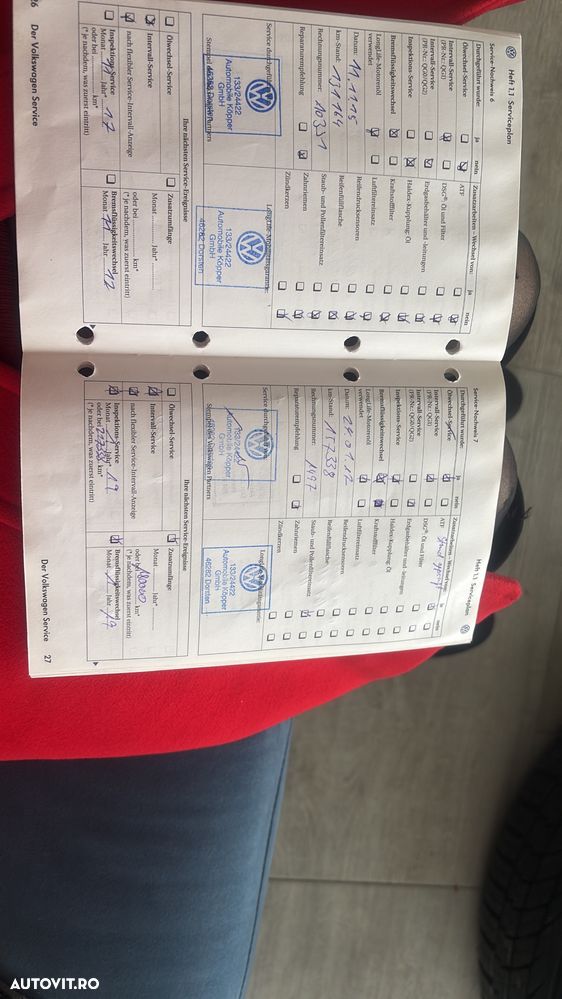 Heft 1.1 Serviceplan
Service-Nachweis 6
Durchgeführt wurde: ja nein
Ölwechsel-Service
Intervall-Service
(PR-Nr.: QG1)
Intervall-Service
(PR-Nr.: QG0/QG2)
Inspektions-Service
Bremsflüssigkeitswechsel
LongLife-Motorenöl
verwendet
Datum: 11.11.15
km-Stand: 131164
Rechnungsnummer: 10331
Reparaturempfehlung
Zusatzarbeiten – Wechsel von: ja nein
ATF
DSG®: Öl und Filter
Erdgasbehälter und -leitungen
Haldex-Kupplung: Öl
Kraftstofffilter
Luftfiltereinsatz
Reifendrucksensoren
Reifenfüllflasche
Staub- und Pollenfiltereinsatz
Zahnriemen
Zündkerzen
Service durchgeführt
133/24422
Automobile Köpper
GmbH
46282 Dorsten
Stempel des Volkswagen Partners
LongLife-Mobilitätsgarantie:
133/24422
Automobile Köpper
GmbH
46282 Dorsten
Ihre nächsten Service-Ereignisse
Ölwechsel-Service
Intervall-Service
nach flexibler Service-Intervall-Anzeige
Inspektions-Service
Monat 11 Jahr* 17
oder bei km*
(* je nachdem, was zuerst eintritt)
Zusatzumfänge
Monat Jahr*
oder bei km*
(* je nachdem, was zuerst eintritt)
Bremsflüssigkeitswechsel
Monat 11 Jahr 17
26 Der Volkswagen Service
Heft 1.1 Serviceplan
Service-Nachweis 7
Durchgeführt wurde: ja nein
Ölwechsel-Service
Intervall-Service
(PR-Nr.: QG1)
Intervall-Service
(PR-Nr.: QG0/QG2)
Inspektions-Service
Bremsflüssigkeitswechsel
LongLife-Motorenöl
verwendet
Datum:
km-Stand: 157338
Rechnungsnummer: 1497
Reparaturempfehlung
Zusatzarbeiten – Wechsel von: ja nein
ATF
DSG®: Öl und Filter
Erdgasbehälter und -leitungen
Haldex-Kupplung: Öl
Kraftstofffilter
Luftfiltereinsatz
Reifendrucksensoren
Reifenfüllflasche
Staub- und Pollenfiltereinsatz
Zahnriemen
Zündkerzen
Service durchgeführt
Automobile Köpper
Stempel des Volkswagen Partners
133/24422
Automobile Köpper
GmbH
46282 Dorsten
Ihre nächsten Service-Ereignisse
Ölwechsel-Service
Intervall-Service
nach flexibler Service-Intervall-Anzeige
Inspektions-Service
Monat 1 Jahr* 19
oder bei km*
(* je nachdem, was zuerst eintritt)
Zusatzumfänge
Monat Jahr*
oder bei 180000 km*
(* je nachdem, was zuerst eintritt)
Bremsflüssigkeitswechsel
Monat 1 Jahr 19
Der Volkswagen Service 27
AUTOVIT.RO